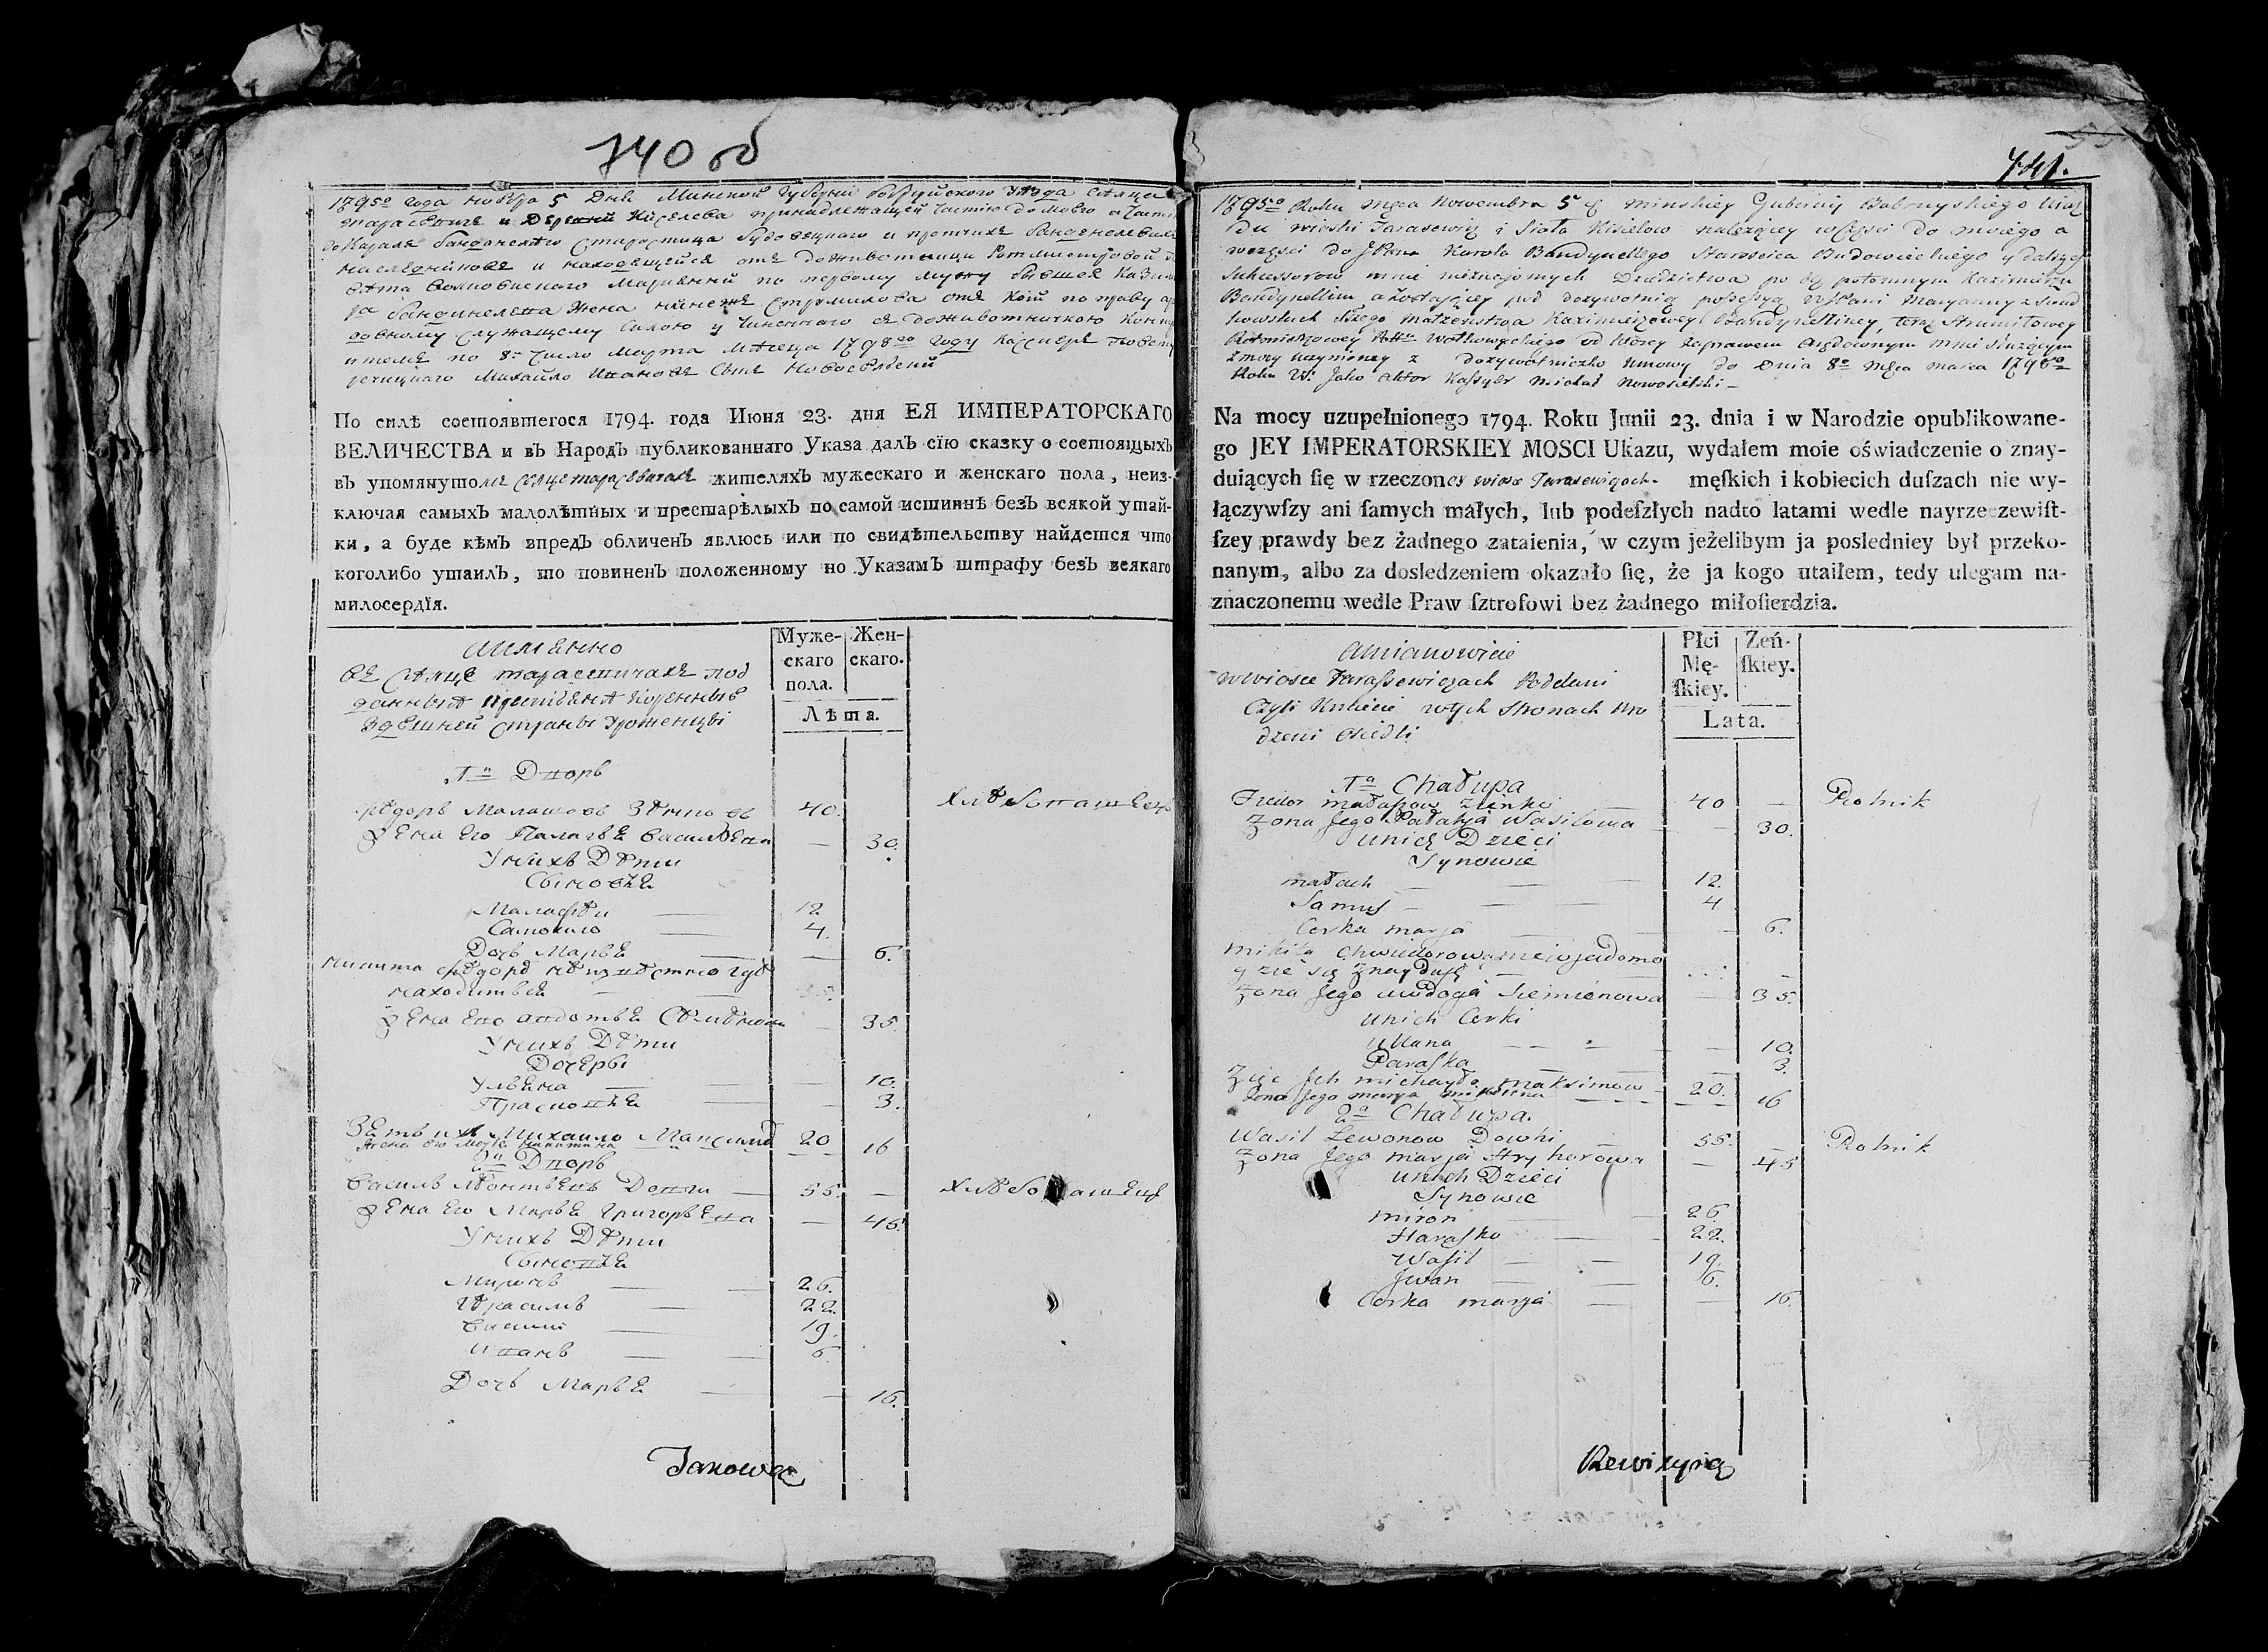 740 об
1795го года ноября 5 Дня Минской Губернии Бобруйского уезда
и Деревни Киселева принадлежащей частию до моего а части
Старостица и протчихъ
наследниковъ и находящейся отъ доживотницы
Марианны по первому мужу бывшея
жена нынеже отъ коей по праву
служащему силою у чиненного съ доживотничкою
по 8е число марта месяца 1798го году
Михайло Ивановъ Сынъ
По силѣ состоявшегося 1794. года Июня 23. дня ЕЯ ИМПЕРАТОРСКАГО
ВЕЛИЧЕСТВА и въ Народъ публикованнаго Указа далъ сїю сказку о состоящыхъ
въ упомянутомъ селце тарасевичахъ жителяхъ мужескаго и женскаго пола, неиз-
ключая самыхъ малолѣтныхъ и престарѣлыхъ по самой истиннѣ безъ всякой утай-
ки, а буде кѣмъ впредъ обличенъ явлюсь или по свидѣтельству найдется что
коголибо утаилъ, то повиненъ положенному по Указамъ штрафу безъ всякаго
милосердїя.
аимянно
въ селце тарасевичахъ под
данныя крестьяня коренныя
здешней страны уроженцы
Муже-
скаго
пола.
Жен-
скаго.
Лѣта.
1й Дворъ
Федоръ Малашовъ Зенковъ 40. Хлебопашецъ
жена его Палагея Васильевна — 30.
У нихъ Дети
Сыновья
Малафеи — 12
Самоило — 4.
Дочь Марья — — 6.
никита федоровъ неизвестно гдѣ
находиться
жена ево авдотья Семенова — 35.
У нихъ Дети
Дочеры
Ульяна — 10.
Прасковья — 3.
Зять ихъ Михаило Максимовъ 20
жена его Марья никитина 16
2й Дворъ
Василь Леонтьевъ Довги — 55. — Хлебопашецъ
жена его Марья Григорьевна — 46.
У нихъ Дети
Сыновья
Миронъ — 26.
Герасимъ — 22.
Василий — 19.
Иванъ — 6.
Дочь Марья — — 16.
Janowa
741.
1795go Roku Mca Nowembra 5 d minskiey Gubernij Bobruyskiego Uiaz
du wioski Tarasewicz i Sioła Kisielow należącey wczęsci do moiego a
wczęsci do JPana Karola Bandynellego Starościca Budowieckiego y dalszych
Sukcessorow mnie nieznajomych Dziedzictwa po potomnym Kazimierzu
Bandynellim, a zostającey pod dożywotnią possessyą WJPani Maryanny z
1szego małżeństwa Kazimierzowey Bandynelliney, teraz Strumiłowey
Rotmistrzowey Pttu Wołkowyskiego od ktorey zaprawem Arędownym mnie służącym
z mocy uczynioney z dożywotniczko umowy do Dnia 8o Mca marca 1798o
Roku W: Jako aktor Kassyer Michał Nowosielski —
Na mocy uzupełnionego 1794. Roku Junii 23. dnia i w Narodzie opublikowane-
go JEY IMPERATORSKIEY MOSCI Ukazu, wydałem moie oświadczenie o znay-
duiących ſię w rzeczoney wiosce Tarasewiczach. męſkich i kobiecich duſzach nie wy-
łączywſzy ani ſamych małych, lub podeſzłych nadto latami wedle nayrzeczewiſt-
ſzey prawdy bez żadnego zataienia, w czym jeżelibym ja posledniey był przeko-
nanym, albo za dosledzeniem okazało ſię, że ja kogo utaiłem, tedy ulegam na-
znaczonemu wedle Praw ſztrofowi bez żadnego miłoſierdzia.
Amianowicie
w wiosce Tarassewiczach Poddani
Czyli Kmiecie w tych stronach Uro
dzeni Osiedli
Płci
Mę-
ſkiey.
Zeń-
ſkiey.
Lata.
1a Chałupa
Fiedor małaszow Zienki — 40 — Rolnik
Zona Jego Pałasja Wasilowa — 30.
Unich Dzieci
Synowie
małach — 12.
Samuś — 4
Corka marja — 6.
Mikita Chwiedorow niewjadomo
gdzie się Znayduje —
Zona Jego awdocia Siemionowa — 35.
Unich Corki
Ullana — 10.
Paraska — 3.
Zięc Ich michayło maksimow 20.
Zona Jego marya mikitina 16
2a Chałupa.
Wasil Lewonow Dowhi — 55. — Rolnik
Zona Jego marja Hryhorowa — 45
Unich Dzieci
Synowie
miron — 26.
Harasko — 22.
Wasil — 19.
Jwan — 6.
Corka marya — 16.
Rewizyia